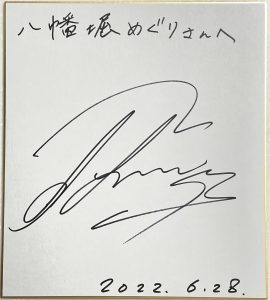 八幡堀めぐりさんへ
2022.6.28.